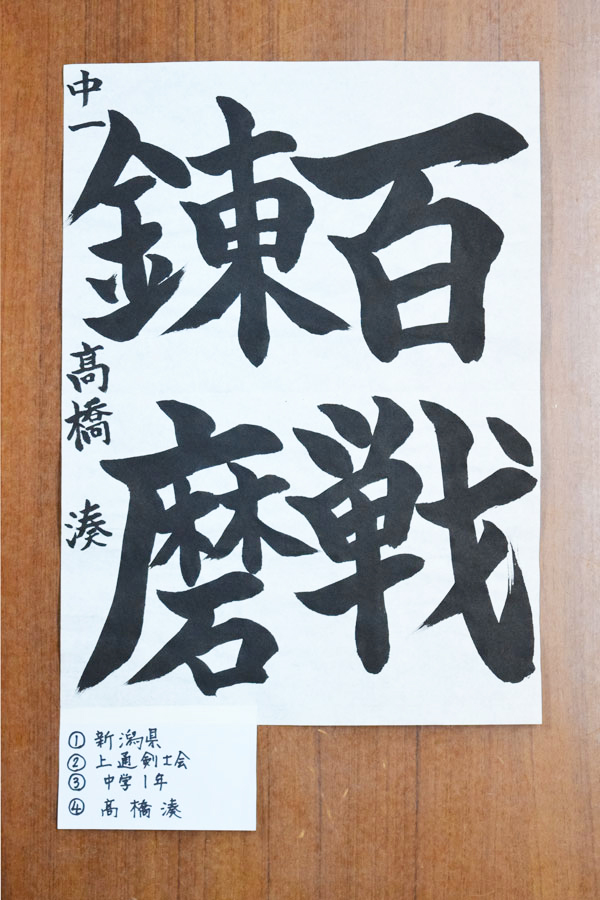 百戦
錬磨
中一 髙橋 湊
① 新潟県
② 上通剣士会
③ 中学1年
④ 髙橋湊